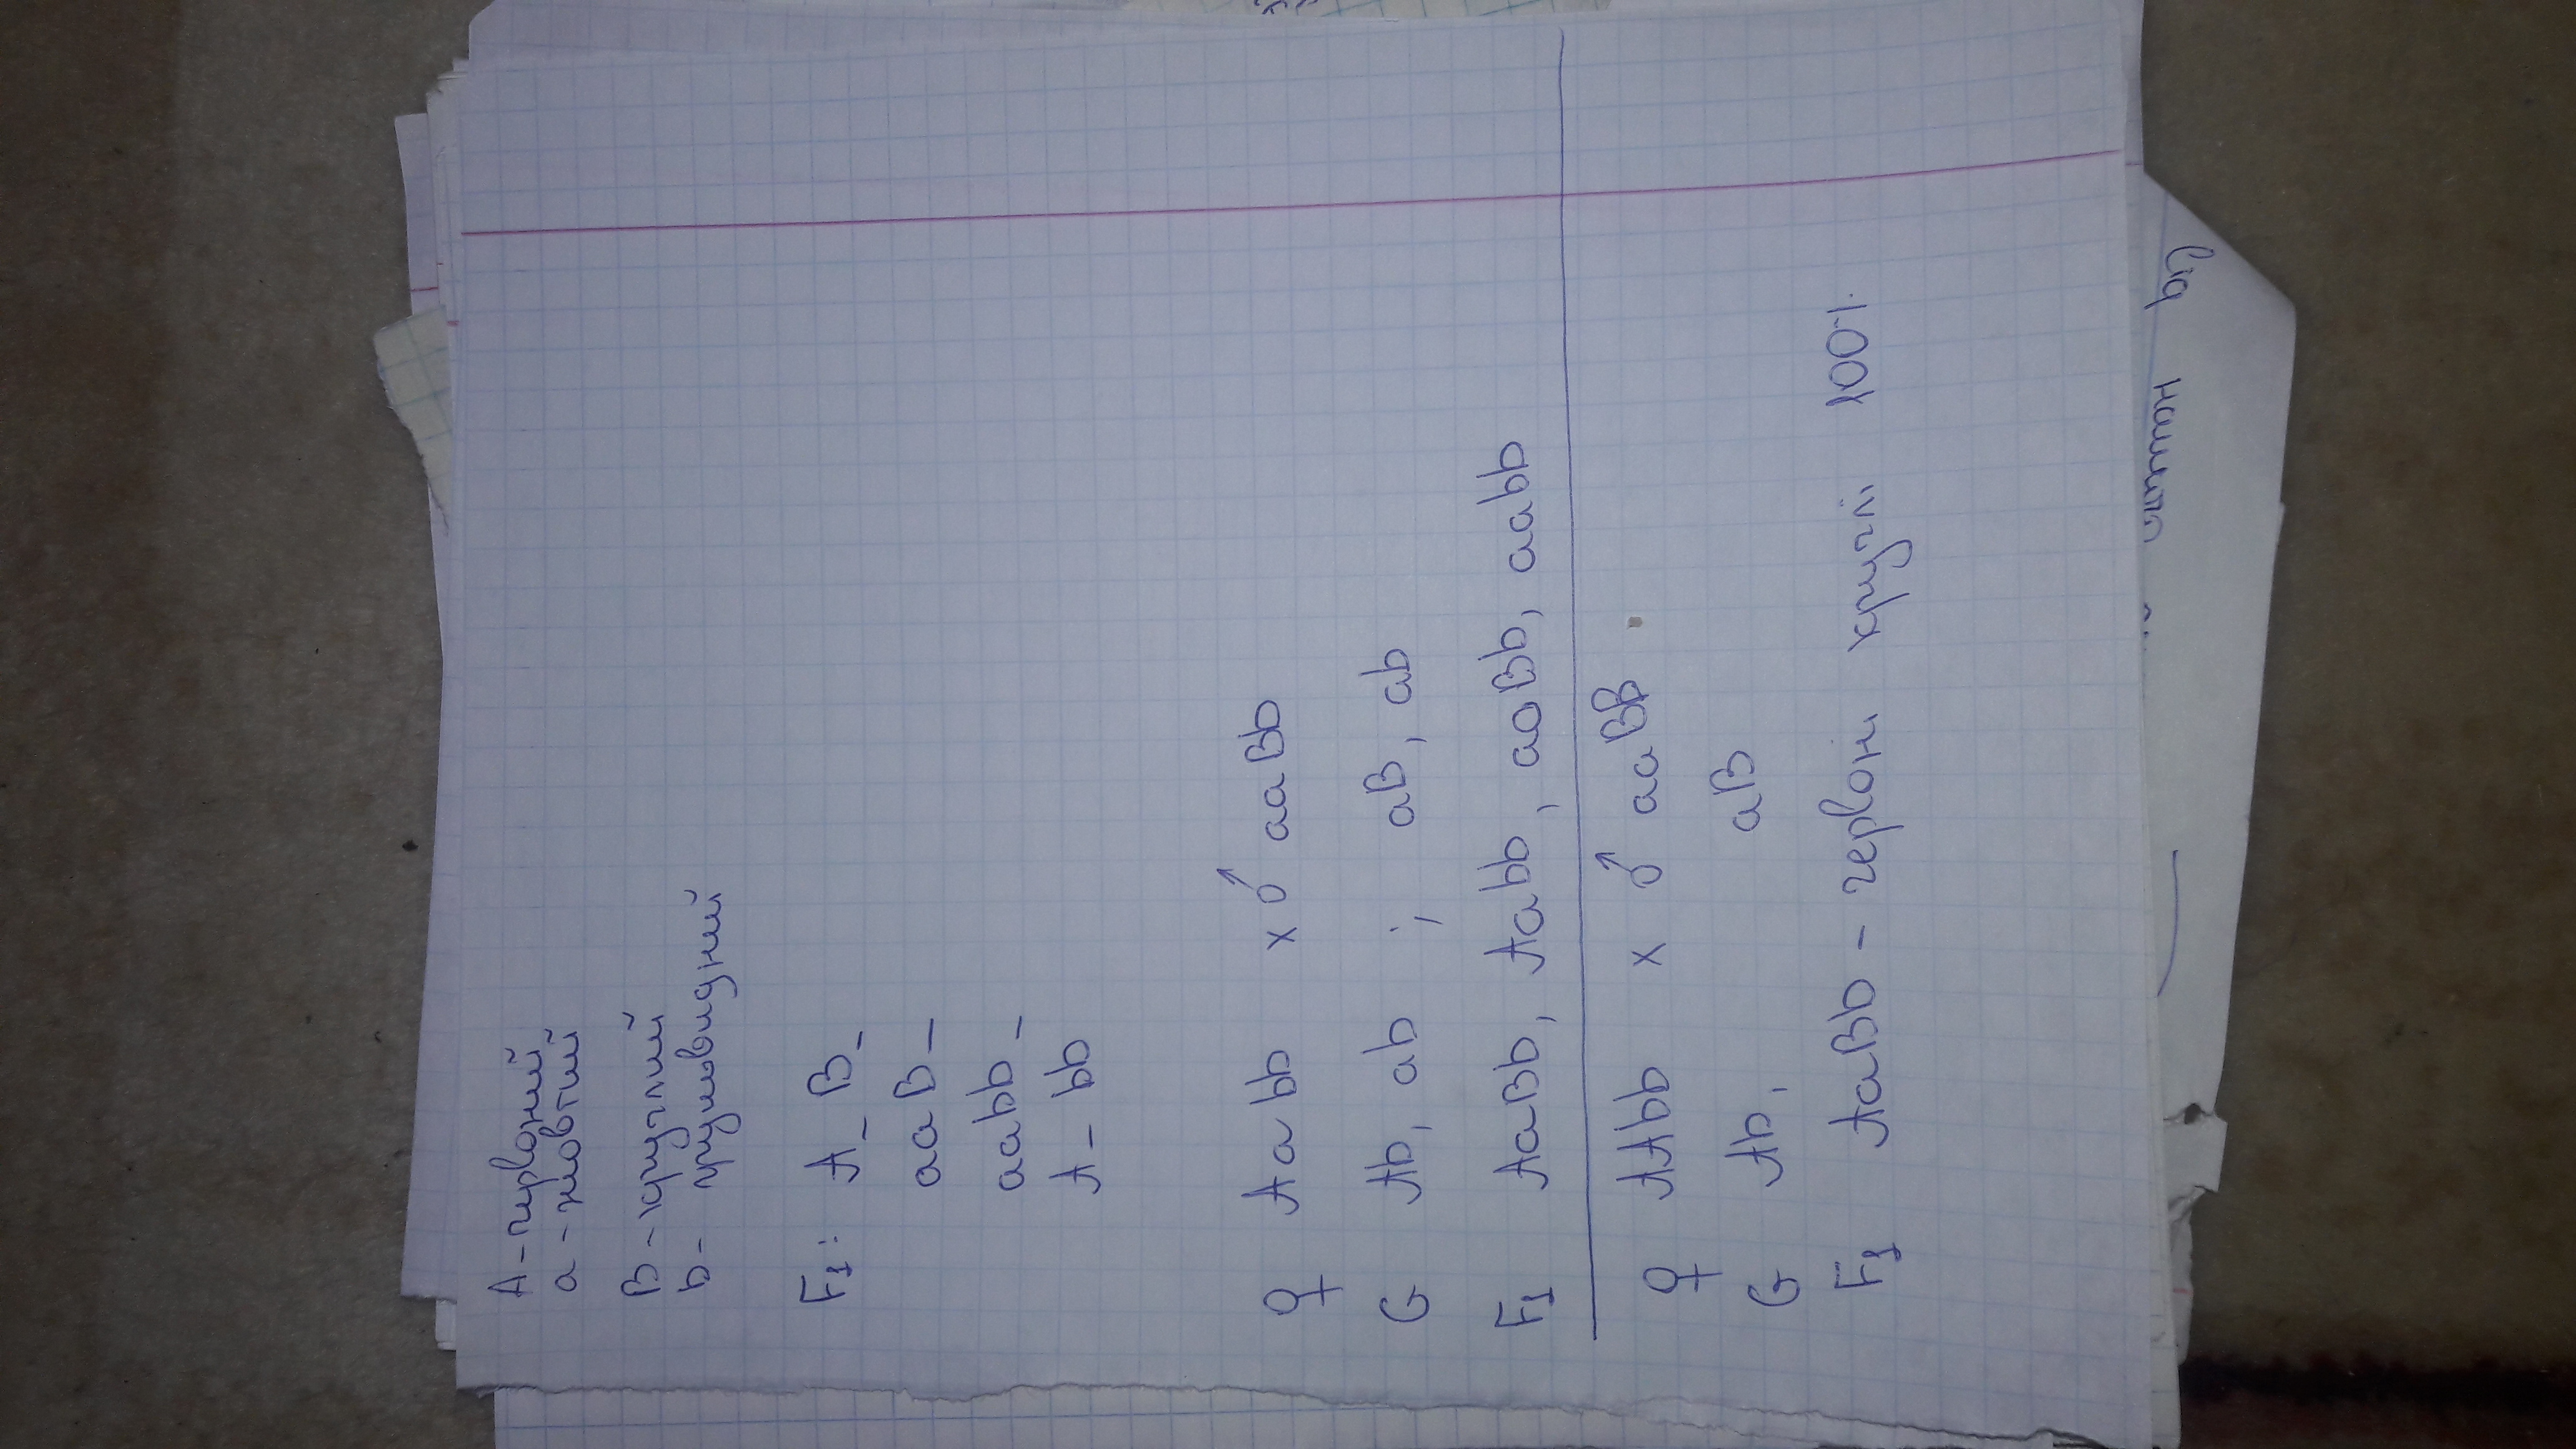 A - червоний
a - жовтий
B - круглий
b - грушовидний
F1: A_ B_
aaB_
aabb_
A_ bb
♀ Aabb x ♂ aaBb
G Ab, ab ; aB, ab
F1 AaBb, Aabb, aaBb, aabb
♀ AAbb x ♂ aaBB.
G Ab, aB
F1 AaBb - червони круглі 100%